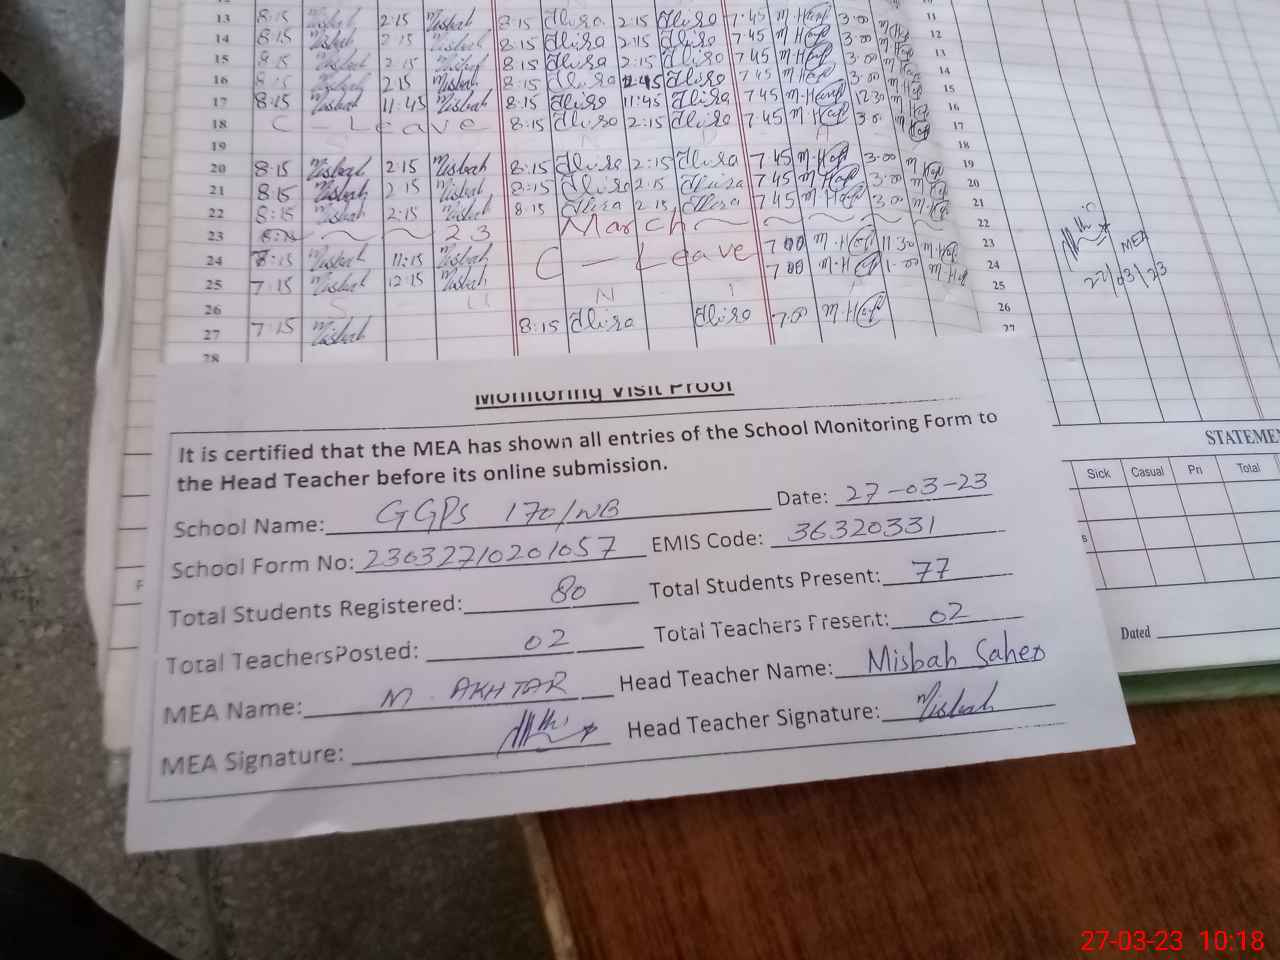 13 8:15 Misbah 2:15 Misbah 8:15 2:15 7.45 3:00 11
14 8:15 Misbah 2:15 Misbah 8:15 2:15 7.45 3:00 12
15 8:15 Misbah 2:15 Misbah 8:15 2:15 7.45 3:00 13
16 8:15 Misbah 2:15 Misbah 8:15 7.45 3:00 14
17 8:15 Misbah 11:45 Misbah 8:15 11:45 7.45 12:30 15
18 C - Leave 8:15 2:15 7.45 16
19 17
18
20 8:15 Misbah 2:15 Misbah 8:15 2:15 7.45 3:00 19
21 8:15 Misbah 2:15 Misbah 8:15 2:15 7.45 3:00 20
22 8:15 Misbah 2:15 Misbah 8:15 2:15 7.45 3:00 21
23 23 March 22
24 8:15 Misbah 11:15 Misbah C - Leave 7:00 11:30 23
25 7:15 Misbah 12:15 Misbah 7:00 1:00 24
26 S U N 25
27 7:15 Misbah 8:15 7:00 26
28 27
MEA
22/03/23
Monitoring Visit Proof
It is certified that the MEA has shown all entries of the School Monitoring Form to
the Head Teacher before its online submission.
School Name: GGPS 170/WB Date: 27-03-23
School Form No: 23032710201057 EMIS Code: 36320331
Total Students Registered: 80 Total Students Present: 77
Total TeachersPosted: 02 Total Teachers Present: 02
MEA Name: M. AKHTAR Head Teacher Name: Misbah Saher
MEA Signature: Head Teacher Signature: Misbah
STATEME
Sick Casual Pri Total
Dated
27-03-23 10:18